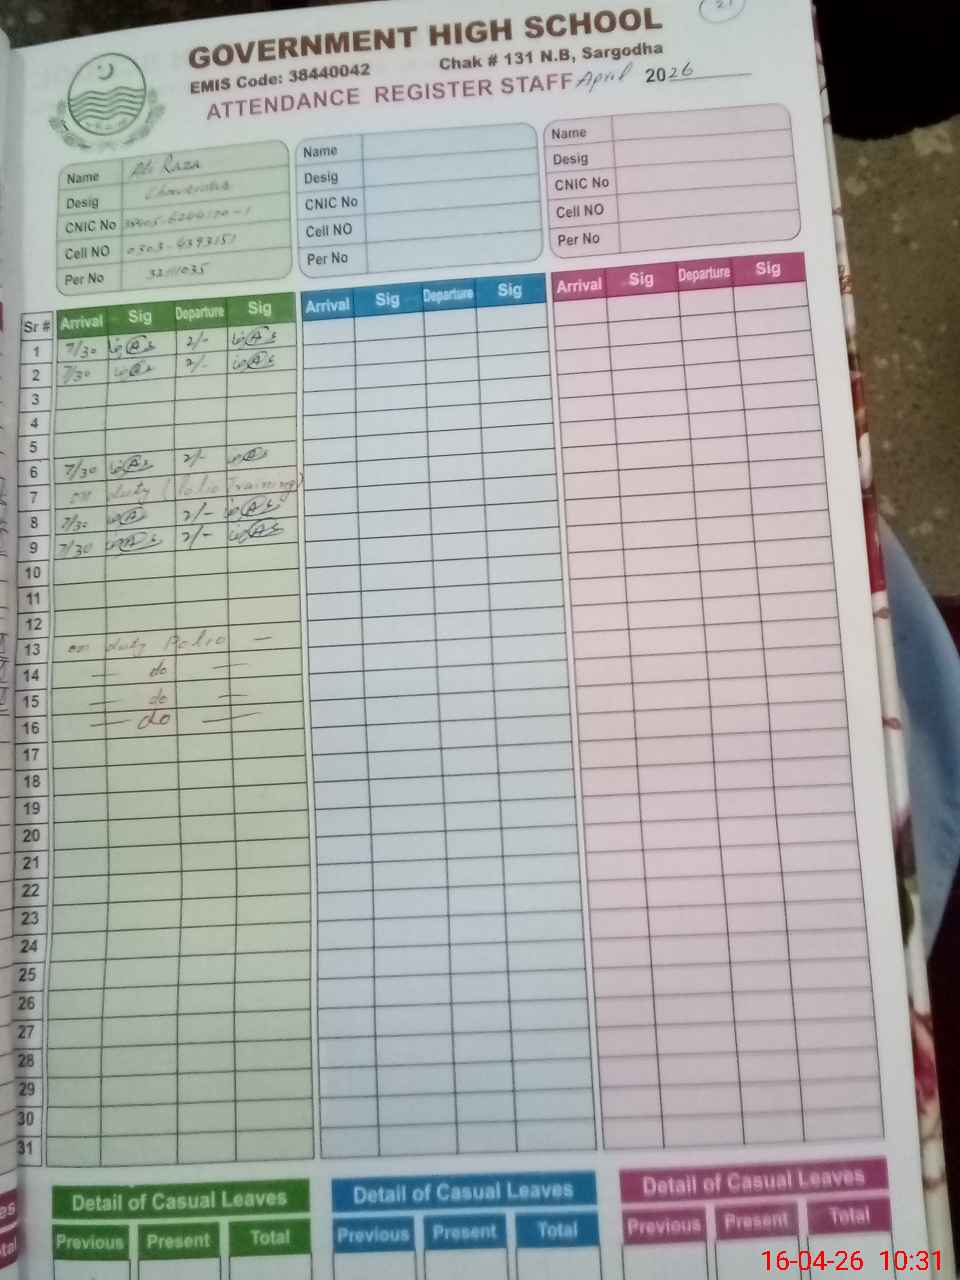 21
GOVERNMENT HIGH SCHOOL
EMIS Code: 38440042 Chak # 131 N.B, Sargodha
ATTENDANCE REGISTER STAFF April 2026
Name Ali Raza
Desig
CNIC No
Cell NO 0303-4393151
Per No
Name
Desig
CNIC No
Cell NO
Per No
Name
Desig
CNIC No
Cell NO
Per No
Sr # Arrival Sig Departure Sig Arrival Sig Departure Sig Arrival Sig Departure Sig
1 7/30 2/-
2 7/30 2/-
3
4
5
6 7/30 2/-
7 on duty (Polio Training)
8 7/30 2/-
9 7/30 2/-
10
11
12
13 on duty Polio —
14 — do —
15 — do —
16 — do —
17
18
19
20
21
22
23
24
25
26
27
28
29
30
31
Detail of Casual Leaves Detail of Casual Leaves Detail of Casual Leaves
Previous Present Total Previous Present Total Previous Present Total
16-04-26 10:31